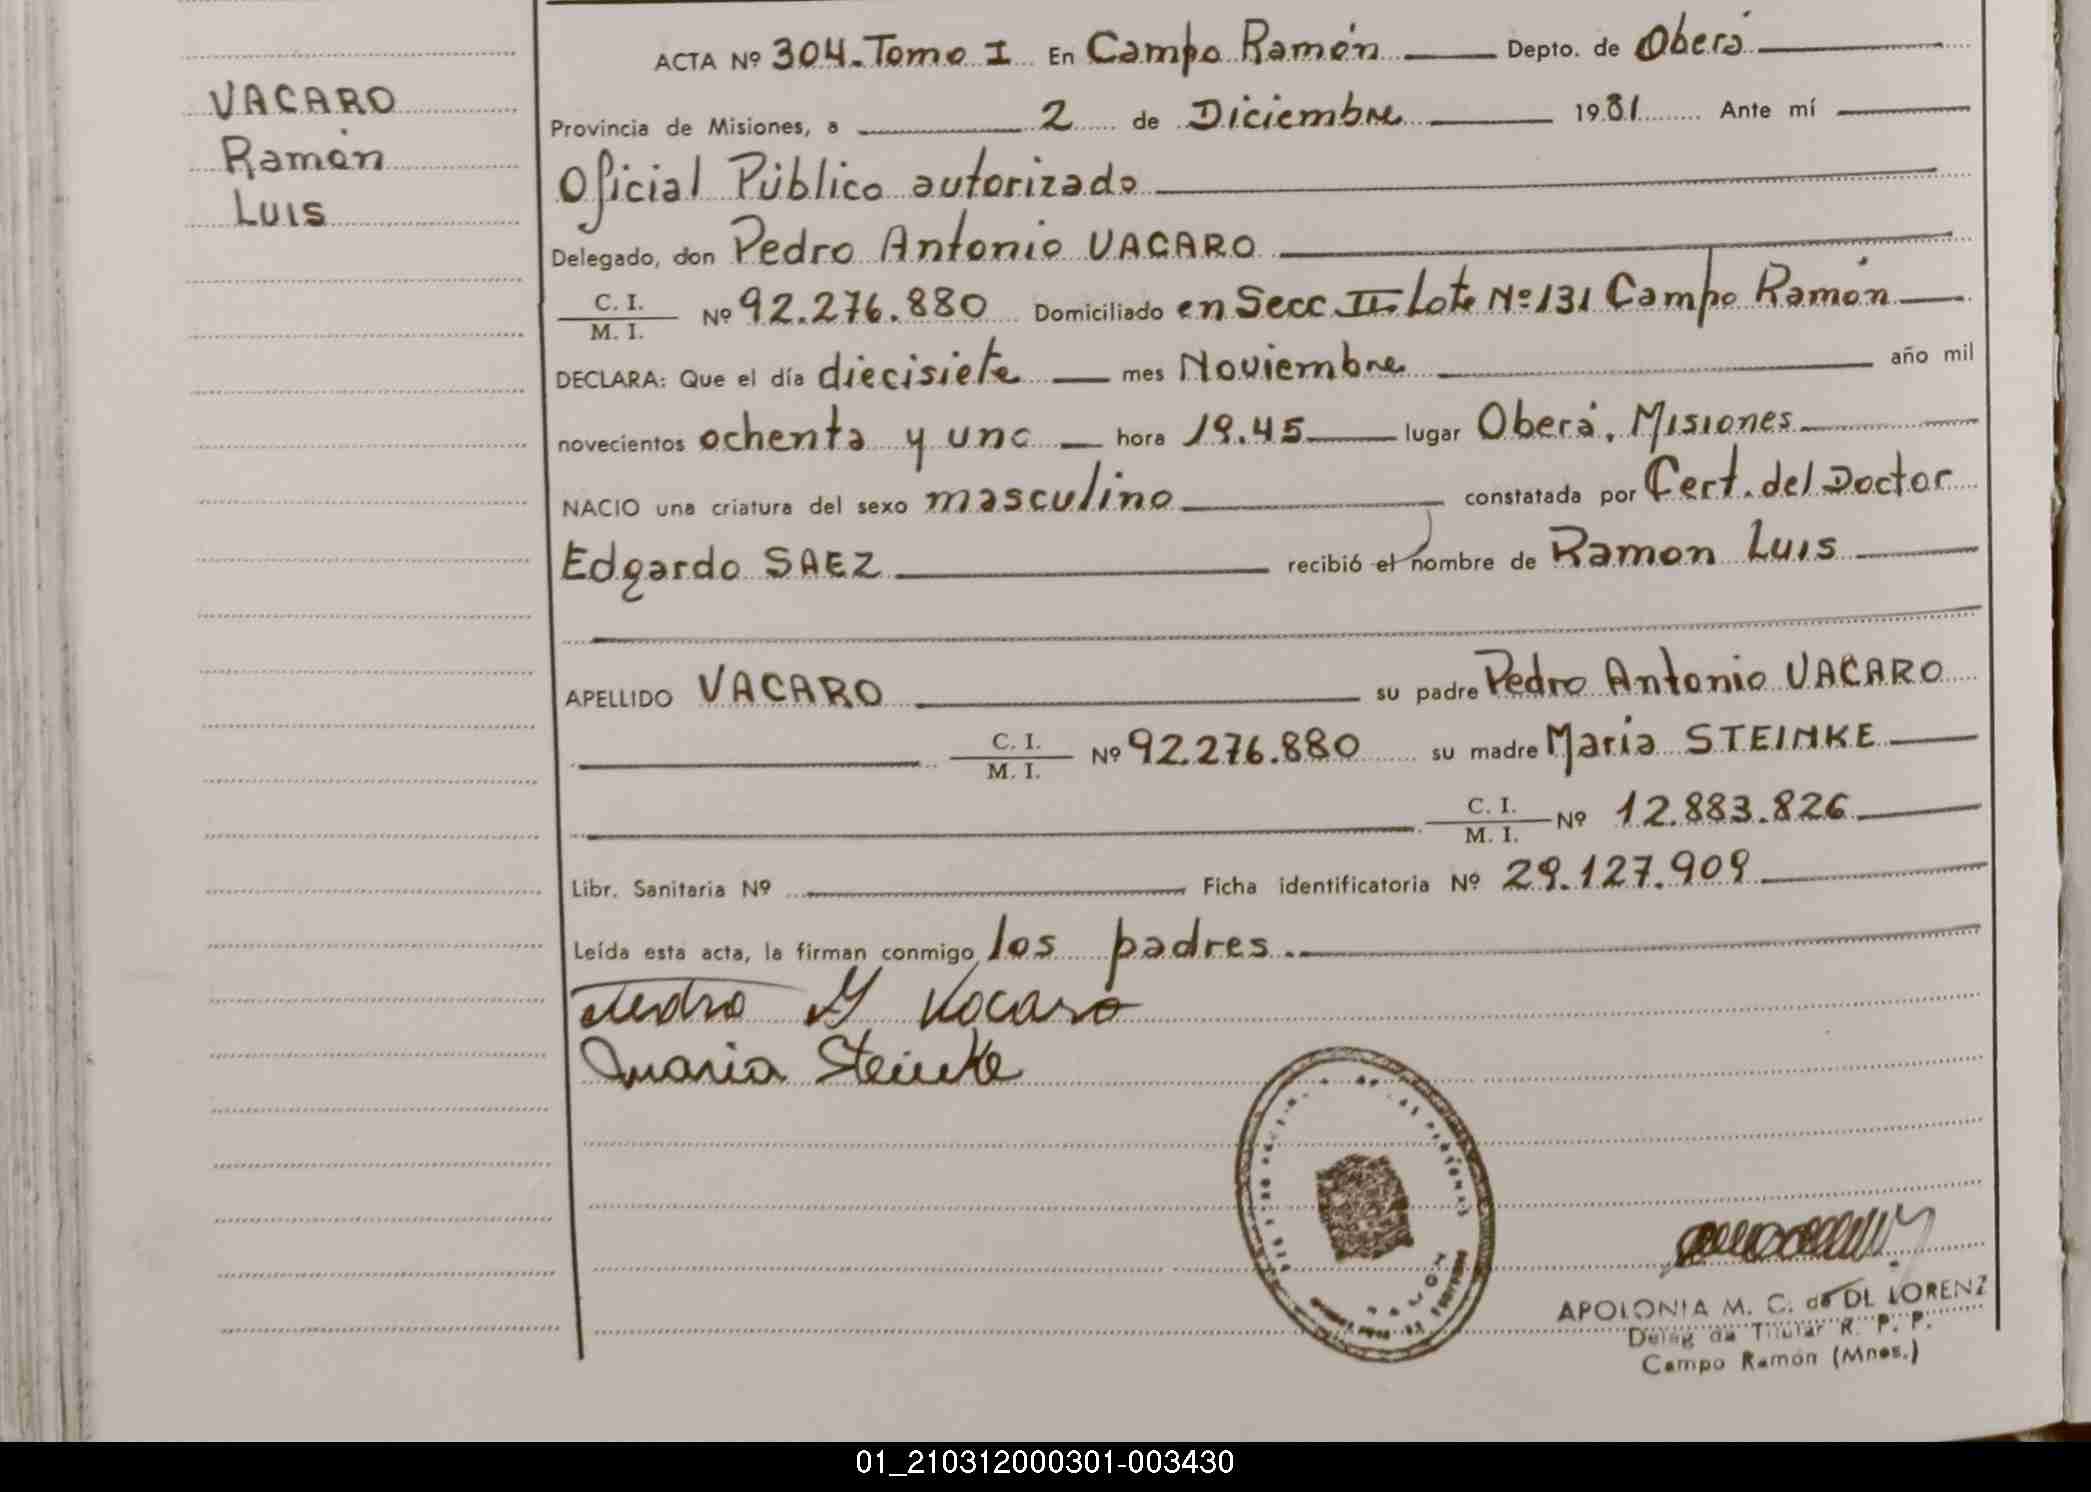 VACARO
Ramón
Luis
ACTA Nº 304. Tomo I En Campo Ramón Depto. de Oberá
Provincia de Misiones, a 2 de Diciembre 1981 Ante mí
Oficial Público autorizado
Delegado, don Pedro Antonio VACARO
C. I.
M. I.
Nº 92.276.880 Domiciliado en Secc. II Lote Nº 131 Campo Ramón
DECLARA: Que el día diecisiete mes Noviembre año mil
novecientos ochenta y uno hora 19.45 lugar Oberá, Misiones
NACIO una criatura del sexo masculino constatada por Cert. del Doctor
Edgardo SAEZ recibió el nombre de Ramon Luis
APELLIDO VACARO su padre Pedro Antonio VACARO
C. I.
M. I.
Nº 92.276.880 su madre Maria STEINKE
C. I.
M. I.
Nº 12.883.826
Libr. Sanitaria Nº Ficha identificatoria Nº 29.127.909
Leída esta acta, la firman conmigo los padres.
Pedro A Vacaro
Maria Steinke
APOLONIA M. C. de DI LORENZ
Deleg da Titular R. P. P.
Campo Ramón (Mnes.)
01_210312000301-003430